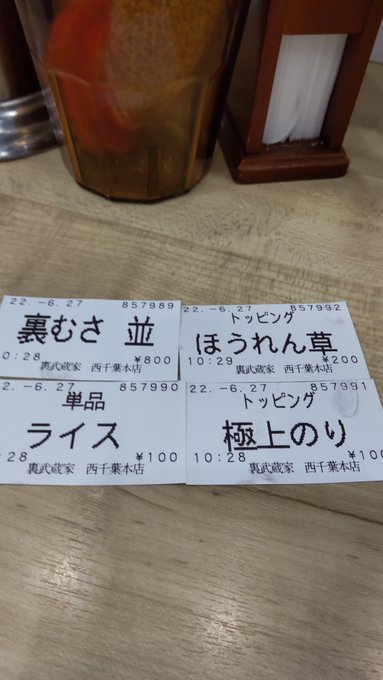 22.-6.27 857989
裏むさ 並
10:28 ¥800
裏武蔵家 西千葉本店
22.-6.27 857992
トッピング
ほうれん草
10:29 ¥200
裏武蔵家 西千葉本店
22.-6.27 857990
単品
ライス
:28 ¥100
裏武蔵家 西千葉本店
22.-6.27 857991
トッピング
極上のり
10:28 ¥100
裏武蔵家 西千葉本店